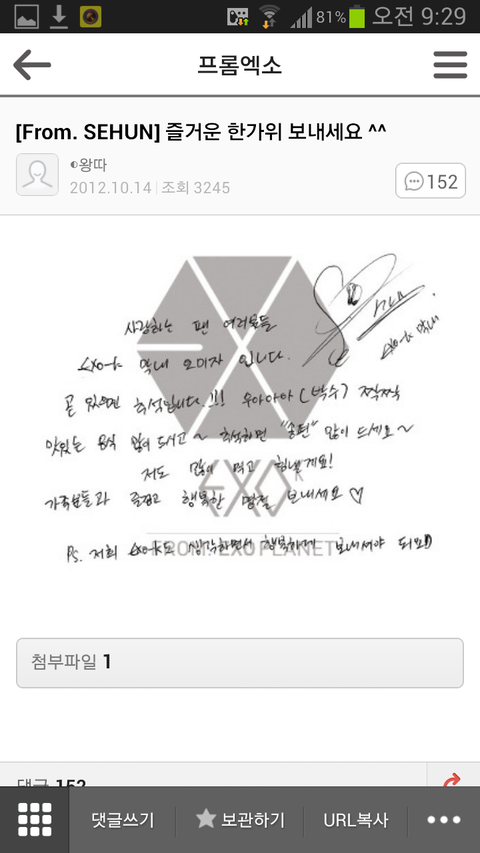 81% 오전 9:29
프롬엑소
[From. SEHUN] 즐거운 한가위 보내세요 ^^
◐왕따
2012.10.14 | 조회 3245
152
사랑하는 팬 여러분들
EXO-K 막내 오미자 입니다.
EXO-K 막내
곧 있으면 추석입니다..!!! 우아아아 (박수) 짝짝
맛있는 음식 많이 드시고 ~ 추석하면 "송편" 많이 드세요~
저도 많이 먹고 힘낼게요!
EXO K
가족분들과 즐겁고 행복한 명절 보내세요 ♡
FROM. EXO PLANET
Ps. 저희 EXO-K도 생각하면서 행복하게 보내셔야 되요!!
첨부파일 1
댓글 152
댓글쓰기 보관하기 URL복사